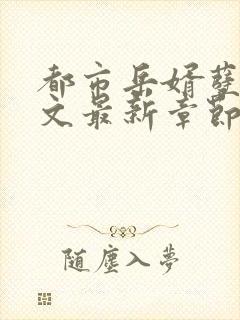 都市岳婿孽
文最新章節
随塵入夢